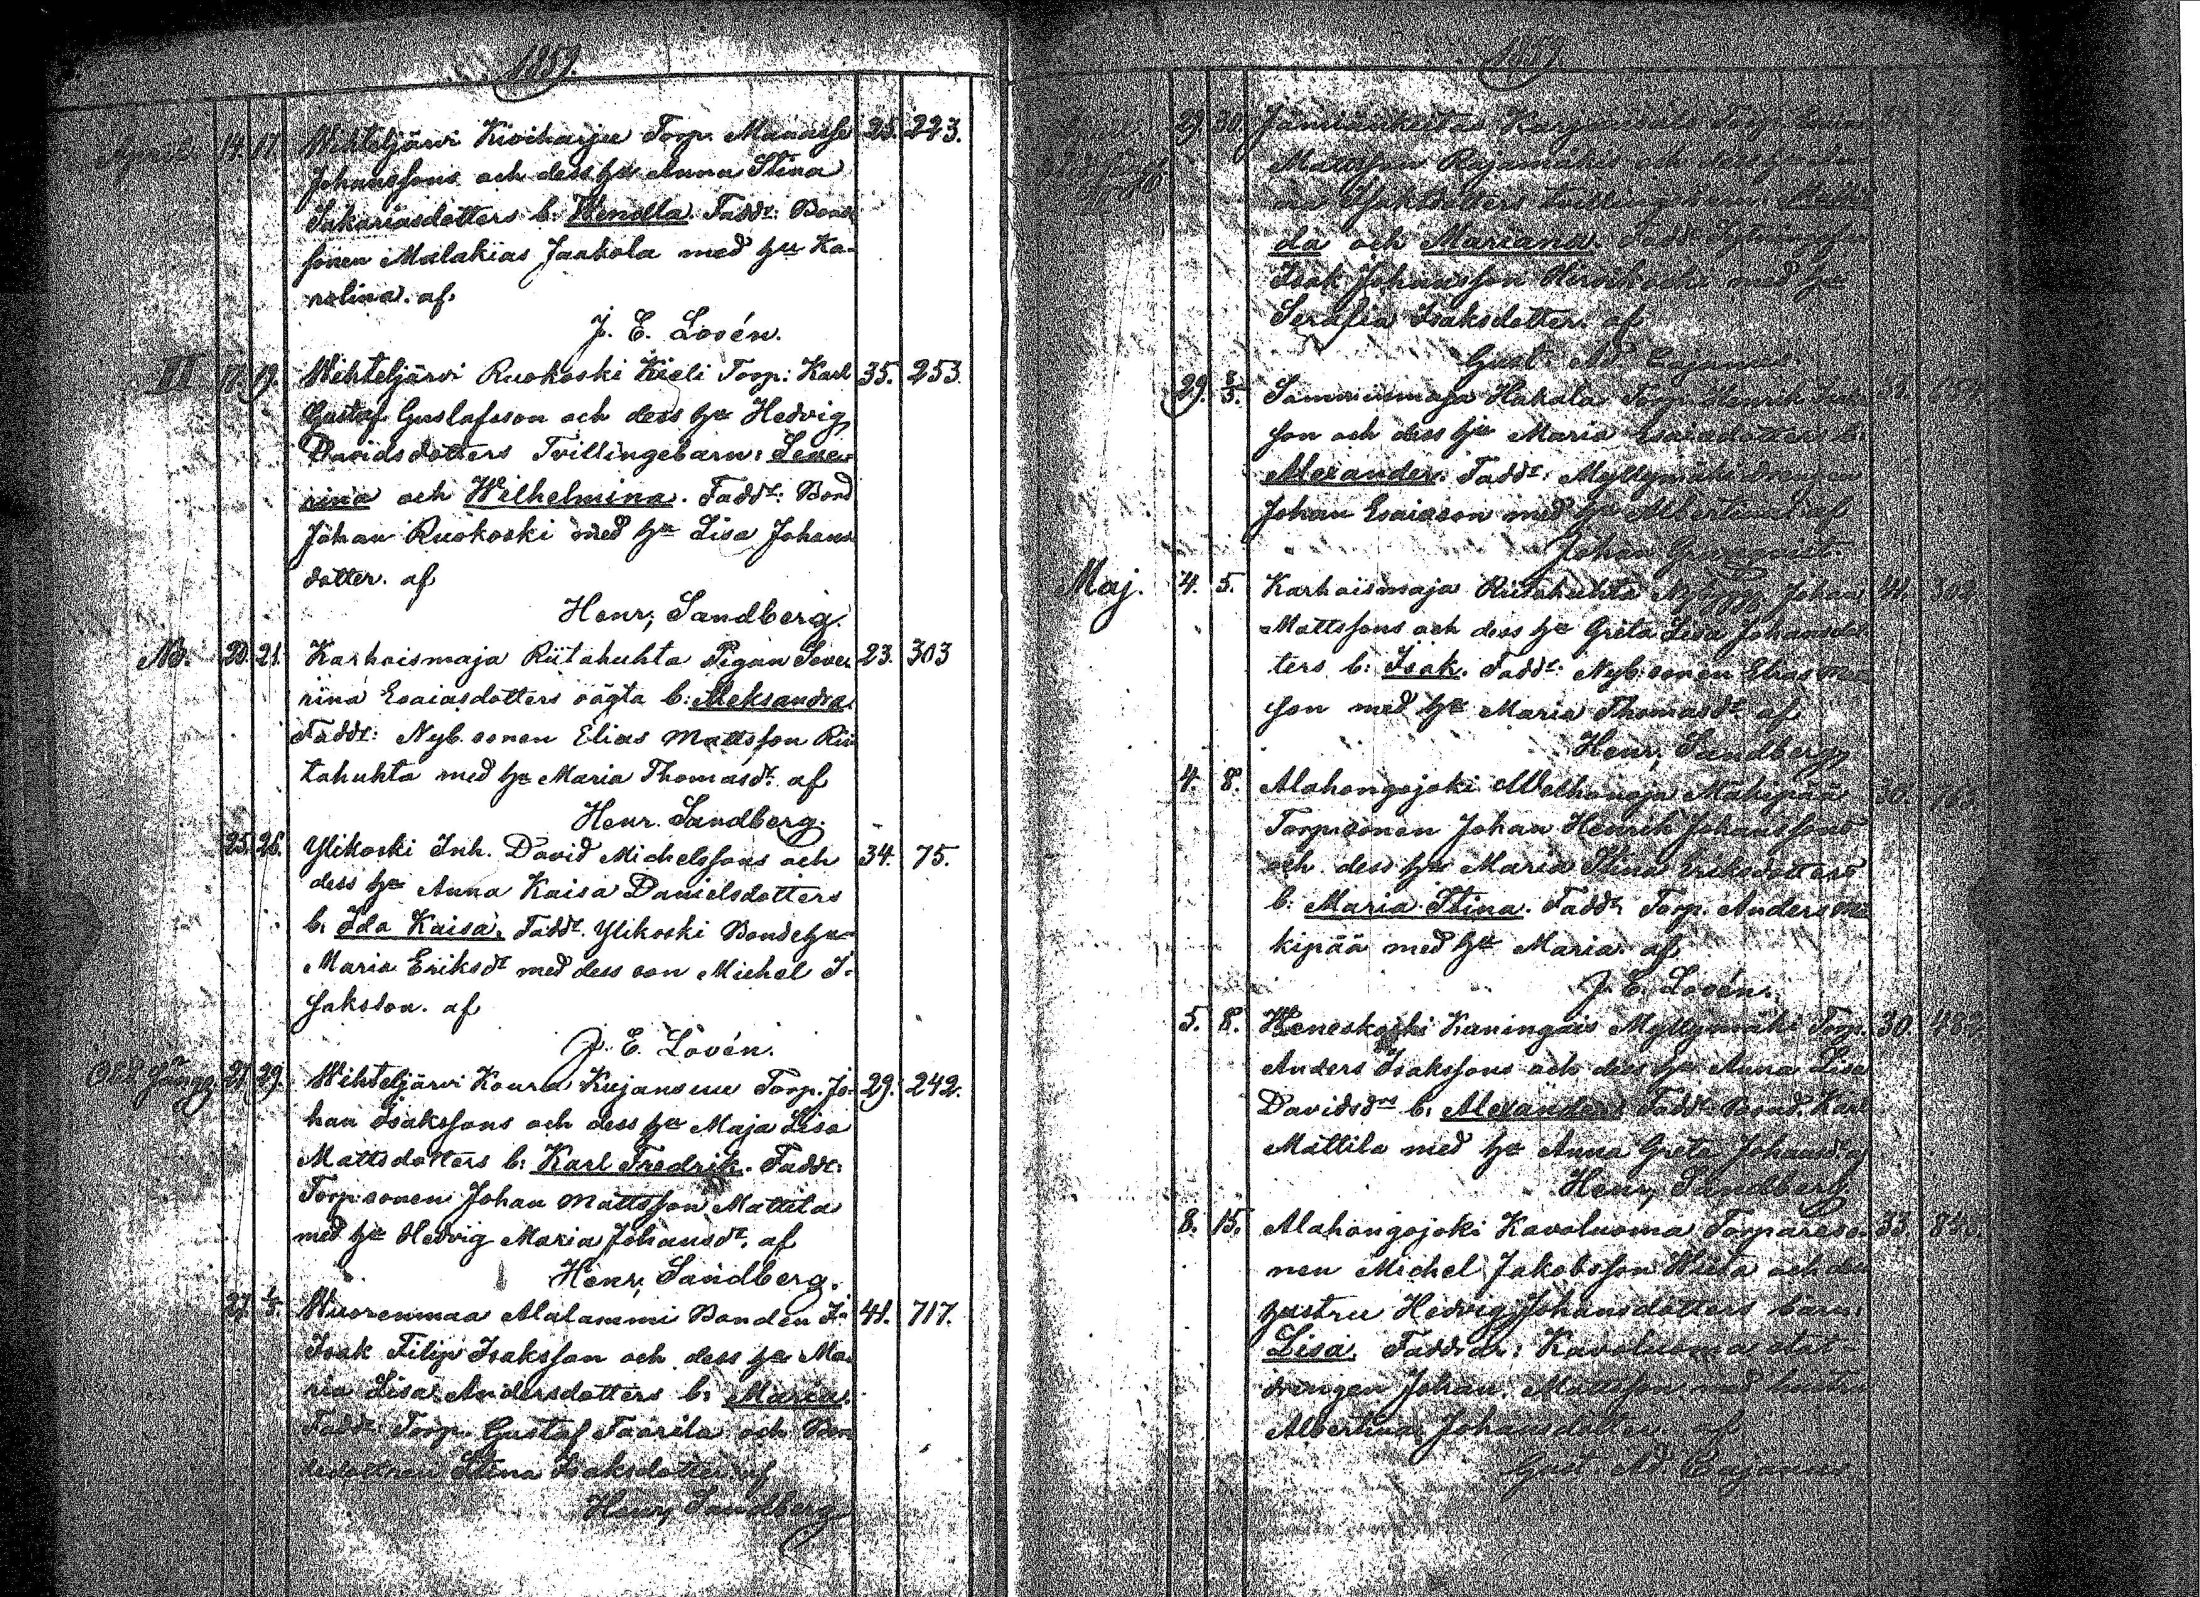 1859.
April. 14. 17. Wihteljärvi Kiviharju Torp. Manasse 25. 223.
Johanssons och dess hu Anna Stina
Sakariasdotters b: Wendla. Faddr: Bond
sonen Malakias Jaakola med hu Ka-
rolina. af.
J. E. Lovén.
II 17. 19. Wihteljärvi Ruokoski Kieli Torp: Karl 35. 253.
Gustaf Gustafsson och dess hu Hedvig
Davidsdotters Tvillingebarn: Seve-
rina och Wilhelmina. Faddr: Bond
Johan Ruokoski med hu Lisa Johans
dotter. af
Henr. Sandberg.
No. 20. 21. Karhoismaja Riitahuhta Pigan Seve- 23. 303
rina Esaiasdotters oägta b: Aleksandra.
Faddr: Nyb. sonen Elias Mattsson Rii
tahuhta med hu Maria Thomasdr. af
Henr. Sandberg.
25. 26. Ylikoski Inh. David Michelssons och 34. 75.
dess hu Anna Kaisa Danielsdotters
b. Ida Kaisa. Faddr. Ylikoski Bondehu
Maria Eriksdr med dess son Michel I-
saksson. af
J. E. Lovén.
29. Wihteljärvi Koura Kujansuu Torp. Jo- 29. 242.
han Isakssons och dess hu Maja Lisa
Mattsdotters b: Karl Fredrik. Faddr:
Torp. sonen Johan Mattsson Mattila
med hu Hedvig Maria Johansdr. af
Henr. Sandberg.
27. 1/5. Wuorenmaa Alalammi Bonden I- 41. 717.
Isak Filip Isaksson och dess hu Ma-
ria Lisa Andersdotters b: Maria.
Faddr: Torp. Gustaf Faarila och Bon
dedottren Stina Isaksdotter af
Henr. Sandberg
1859.
29. 30. Torp.
Mattsson Rajamäki och dess hu
Isaksdotters tvillingebarn:
da och Mariana. Faddr
Isak Johansson Hirvikoski med hu
Serafia Isaksdotter. af
Gust. Ad. Cajanus
29. 3/5. Hakala Torp. Henrik
son och dess hu Maria Esaiasdotters b.
Alexander. Faddr: Myllymäki drängen
Johan Esaiasson med hu Albertina af
Johan
Maj. 4. 5. Karhoismaja Riitahuhta Nybygg. Johan 41.
Mattssons och dess hu Greta Lisa Johansdot
ters b: Isak. Faddr: Nyb: sonen Elias Matts
son med hu Maria Thomasdr af
Henr. Sandberg
4. 8. Alahongojoki Welhonoja Mäkipää 30.
Torp. sonen Johan Henrik Johanssons
och dess hu Maria Stina Eriksdotters
b: Maria Stina. Faddr. Torp. Anders Mä
kipää med hu Maria. af
J. E. Lovén.
5. 8. Weneskoski Kuningais Myllymäki Torp. 30.
Anders Isakssons och dess hu Anna Lisa
Davidsdrs b. Alexander. Faddr: Bond. Karl
Mattila med hu Anna Greta Johansdr. af
Henr. Sandberg
8. 15. Alahongojoki Kavoluoma Torpareso- 33.
nen Michel Jakobsson Wieta och dess
hustru Hedvig Johansdotters barn:
Lisa. Faddrar: Kavoluoma stat-
drängen Johan Mattsson med hustru
Albertina Johansdotter af
Gust. Ad. Cajanus